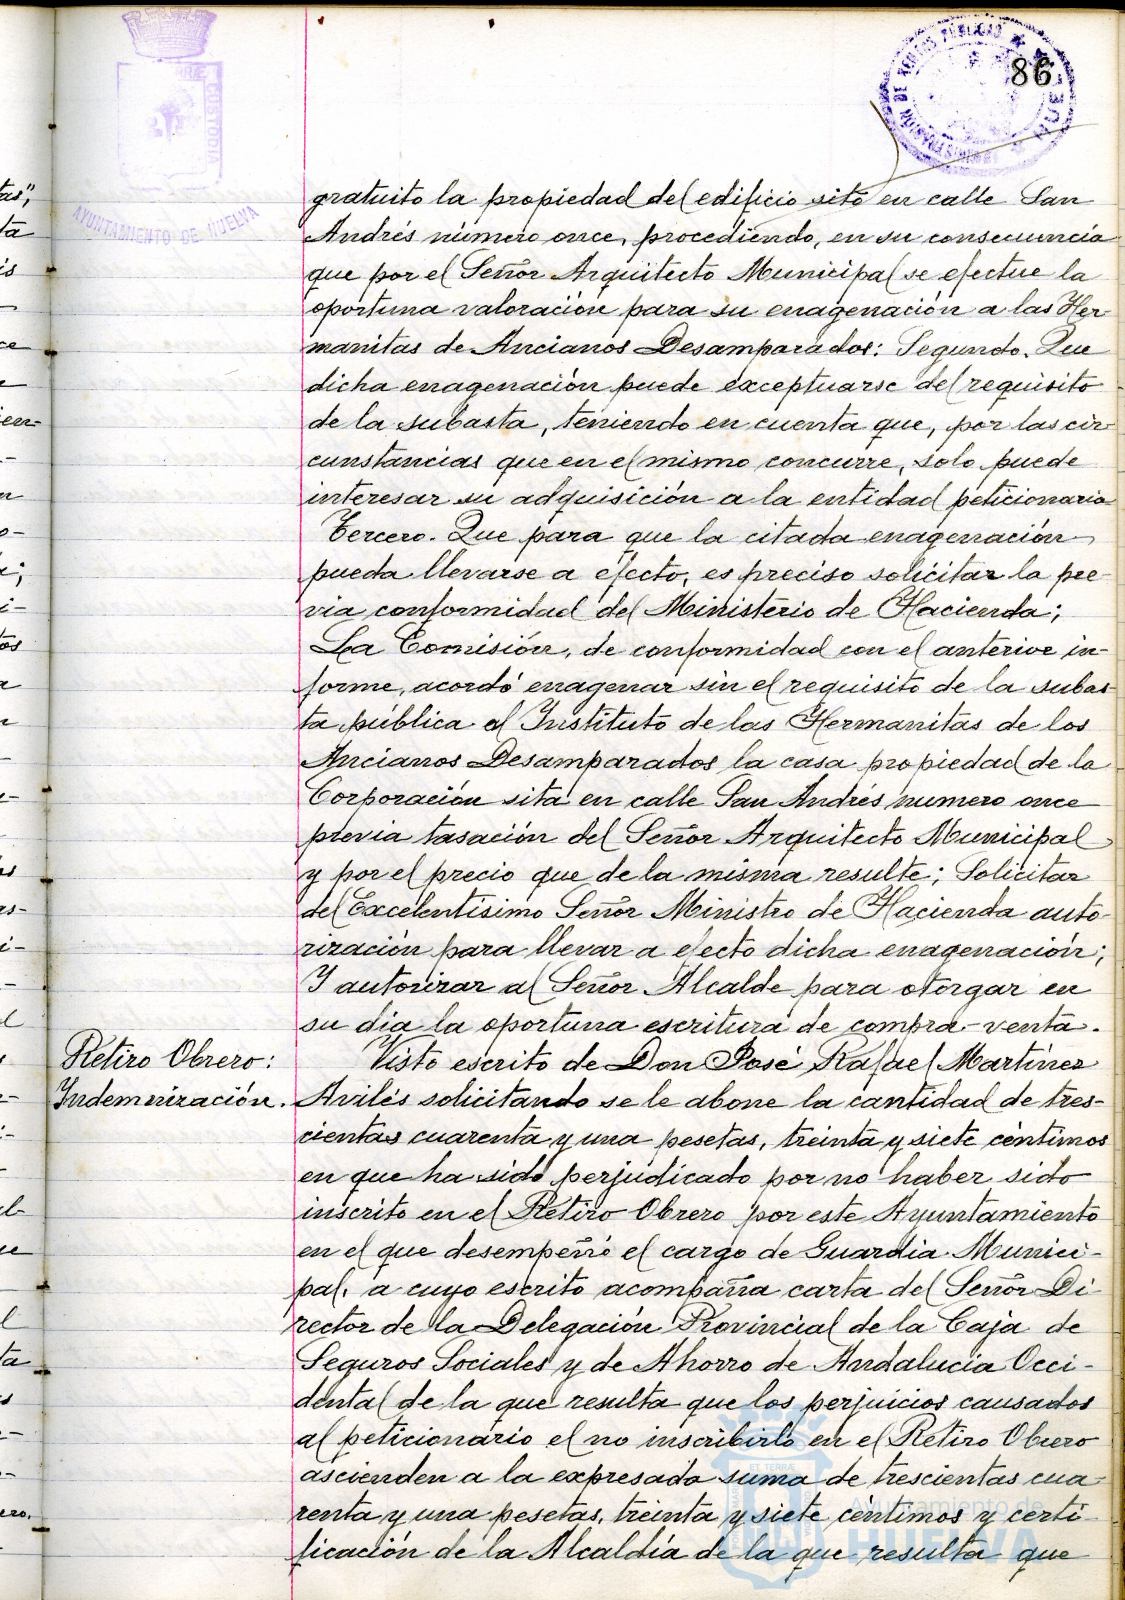 86
AYUNTAMIENTO DE HUELVA
gratuito la propiedad del edificio sito en calle San
Andrés número once, procediendo, en su consecuencia
que por el Señor Arquitecto Municipal se efectue la
oportuna valoración para su enagenación a las Her-
manitas de Ancianos Desamparados: Segundo. Que
dicha enagenación puede exceptuarse del requisito
de la subasta, teniendo en cuenta que, por las cir-
cunstancias que en el mismo concurre, solo puede
interesar su adquisición a la entidad peticionaria
Tercero. Que para que la citada enagenación
pueda llevarse a efecto, es preciso solicitar la pre-
via conformidad del Ministerio de Hacienda;
La Comisión, de conformidad con el anterior in-
forme, acordó enagenar sin el requisito de la subas-
ta pública al Instituto de las Hermanitas de los
Ancianos Desamparados la casa propiedad de la
Corporación sita en calle San Andrés numero once
previa tasación del Señor Arquitecto Municipal
y por el precio que de la misma resulte; Solicitar
del Excelentísimo Señor Ministro de Hacienda auto-
rización para llevar a efecto dicha enagenación;
Y autorizar al Señor Alcalde para otorgar en
su dia la oportuna escritura de compra-venta.
Retiro Obrero:
Indemnización.
Visto escrito de Don José Rafael Martinez
Avilés solicitando se le abone la cantidad de tres-
cientas cuarenta y una pesetas, treinta y siete céntimos
en que ha sido perjudicado por no haber sido
inscrito en el Retiro Obrero por este Ayuntamiento
en el que desempeñó el cargo de Guardia Munici-
pal, a cuyo escrito acompaña carta del Señor Di-
rector de la Delegación Provincial de la Caja de
Seguros Sociales y de Ahorro de Andalucia Occi-
dental de la que resulta que los perjuicios causados
al peticionario el no inscribirlo en el Retiro Obrero
ascienden a la expresada suma de trescientas cua-
renta y una pesetas, treinta y siete céntimos y certi-
ficación de la Alcaldía de la que resulta que
Ayuntamiento de
HUELVA